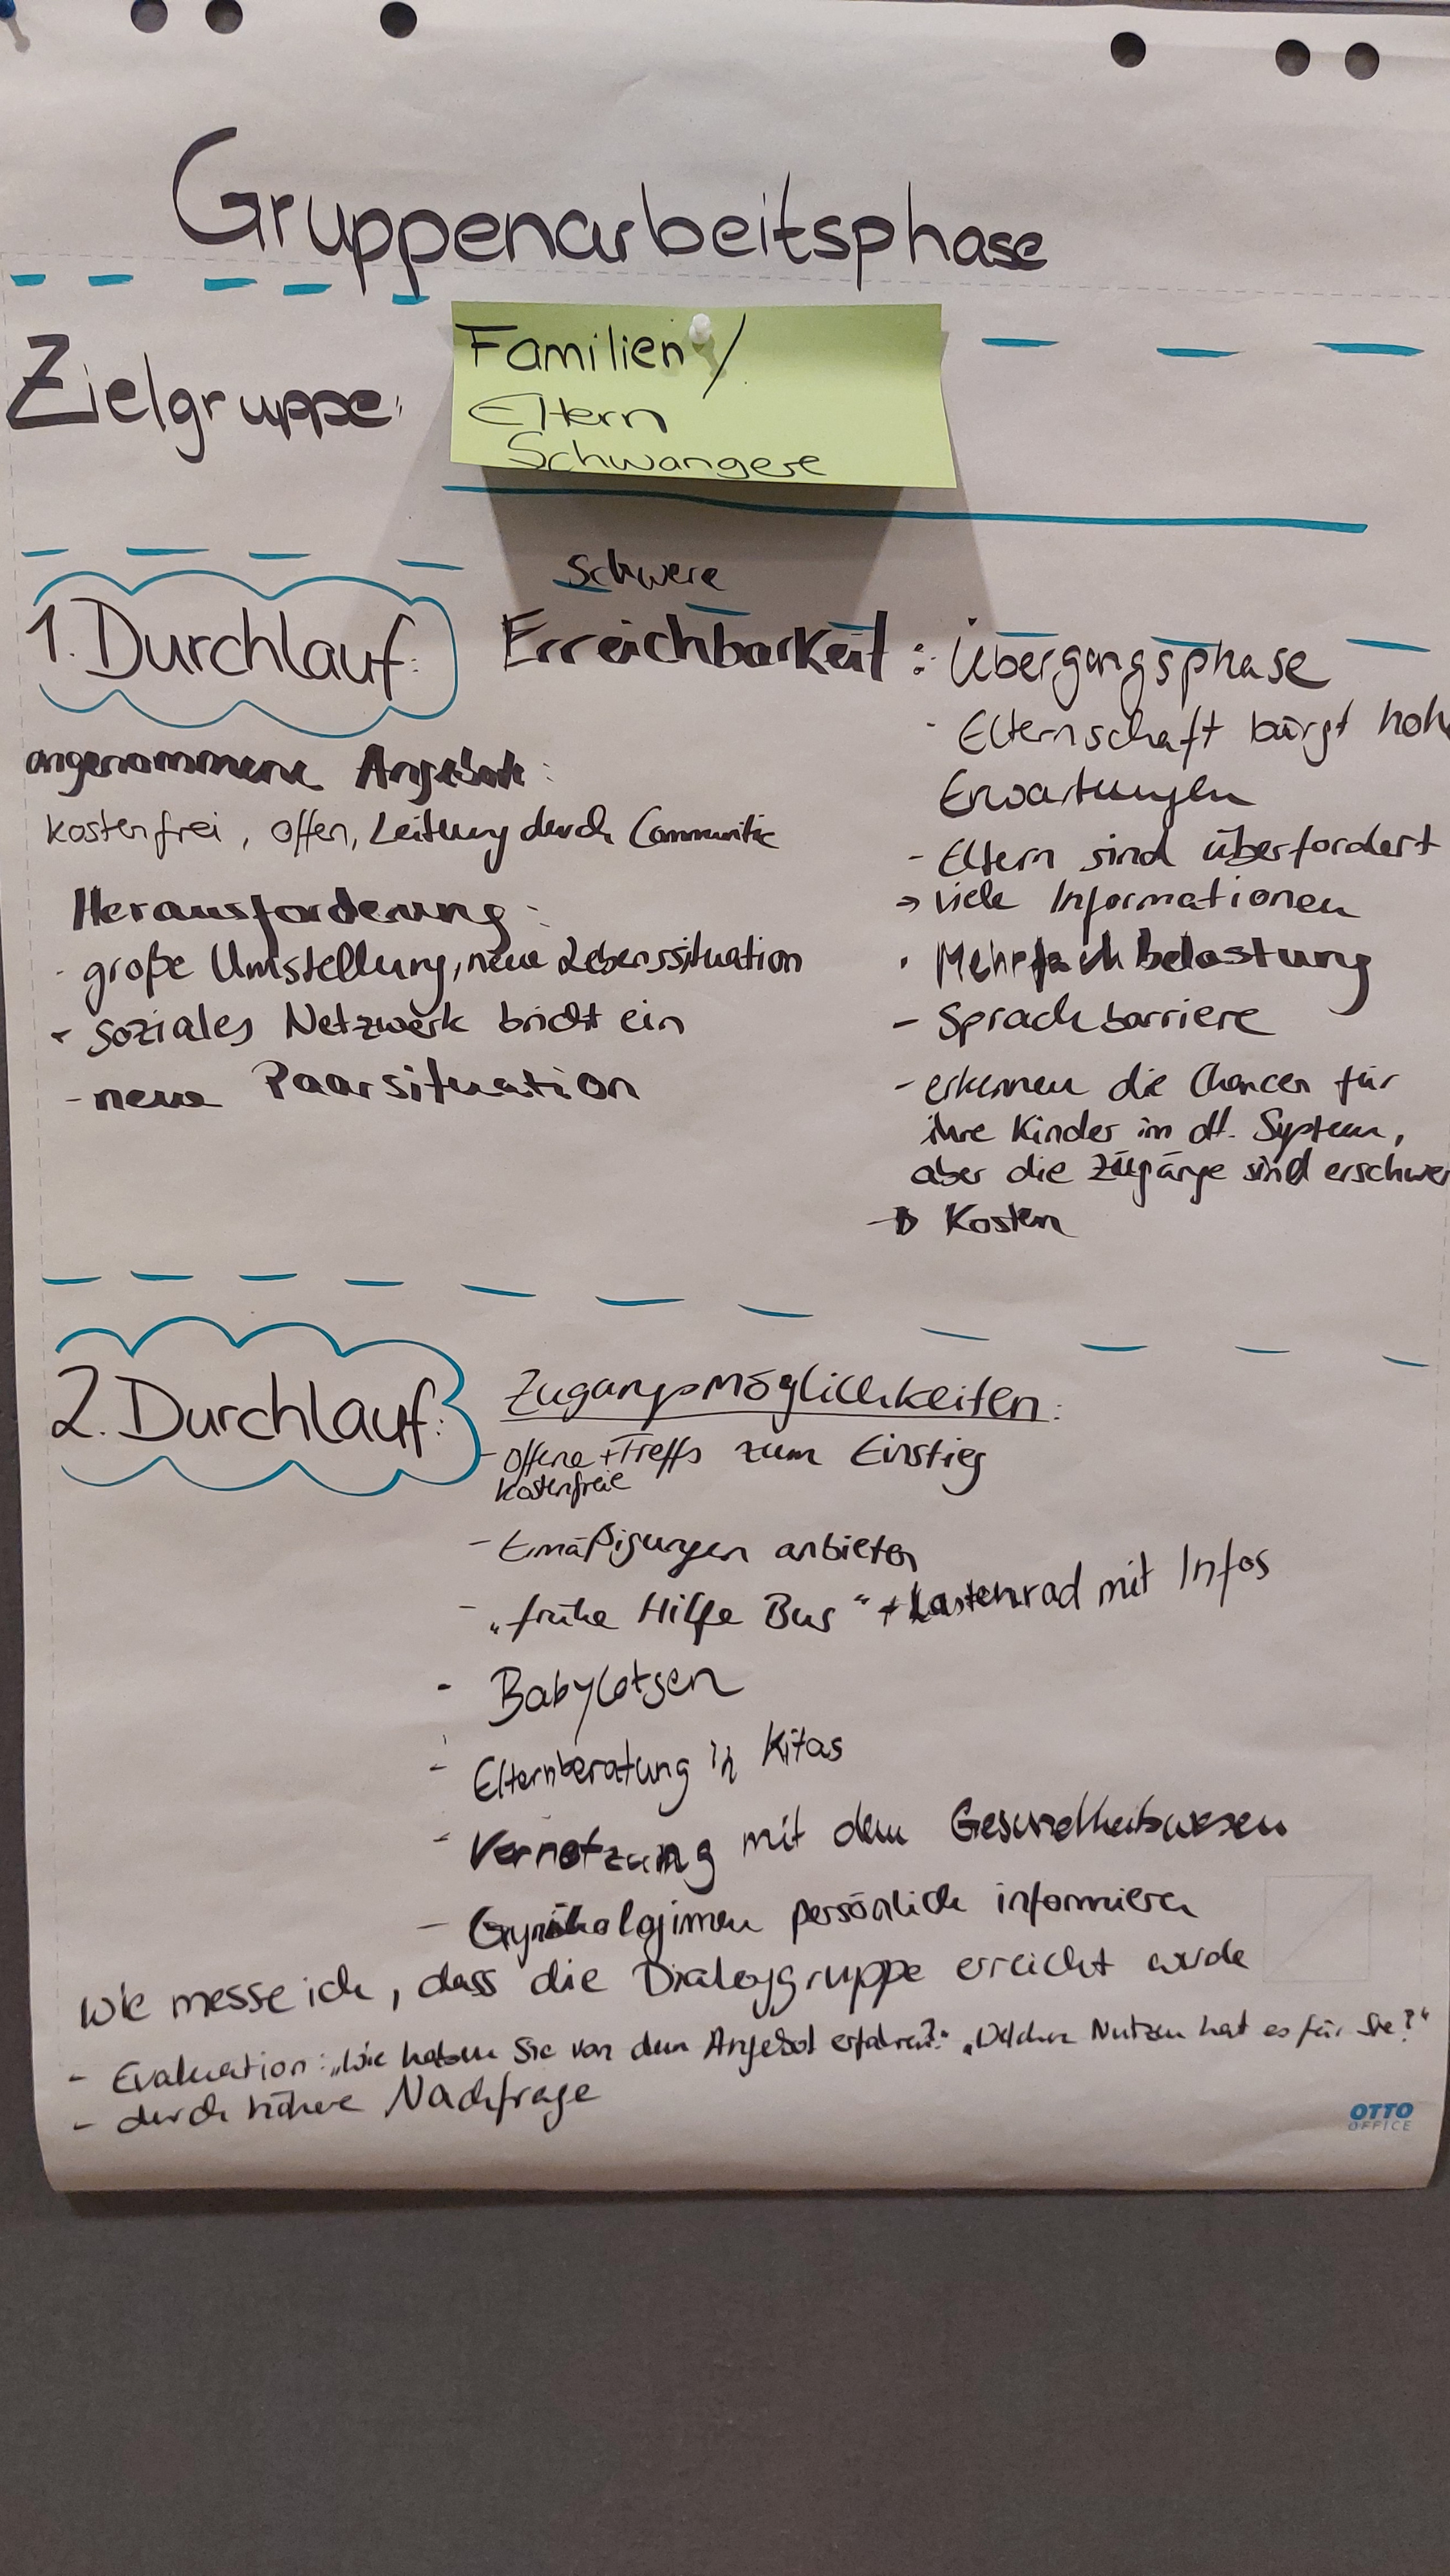 Gruppenarbeitsphase
Zielgruppe:
Familien /
Eltern
Schwangere
1. Durchlauf:
angenommene Angebote:
kostenfrei, offen, Leitung durch Communitie
Herausforderung:
- große Umstellung, neue Lebenssituation
- soziales Netzwerk bricht ein
- neue Paarsituation
Schwere
Erreichbarkeit: Übergangsphase
- Elternschaft bürgt hoh
Erwartungen
- Eltern sind überfordert
→ viele Informationen
· Mehrfachbelastung
- Sprachbarriere
- erkennen die Chancen für
ihre Kinder im dt. System,
aber die Zugänge sind erschwer
→ Kosten
2. Durchlauf:
Zugangsmöglichkeiten:
- offene + Treffs zum Einstieg
kostenfreie
- Ermäßigungen anbieten
- „frühe Hilfe Bus" + Lastenrad mit Infos
- Babylotsen
- Elternberatung in Kitas
- Vernetzung mit dem Gesundheitswesen
- Gynäkologinnen persönlich informieren
Wie messe ich, dass die Dialoggruppe erreicht wurde
- Evaluation: „Wie haben Sie von dem Angebot erfahren?" „Welchen Nutzen hat es für Sie?"
- durch höhere Nachfrage
OTTO
OFFICE